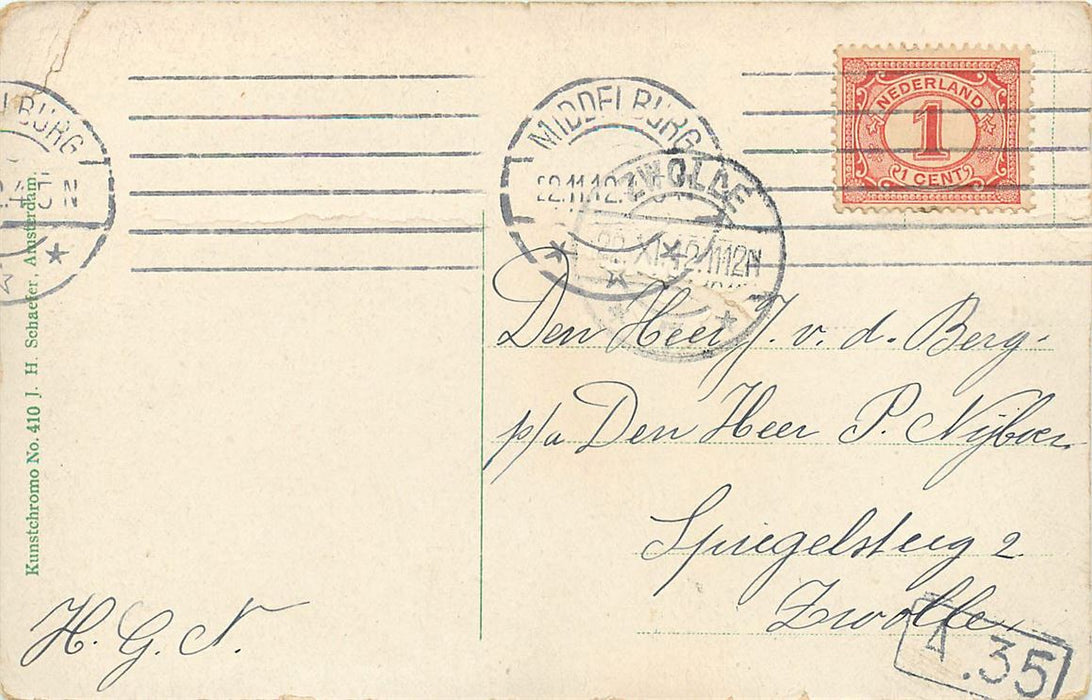 MIDDELBURG
22.11.12.
ZWOLLE
NEDERLAND
1
1 CENT
Den Heer J. v. d. Berg.
p/a Den Heer P. Nijboer
Spiegelsteeg 2
Zwolle
A.35
H. G. N.
Kunstchromo No. 410 J. H. Schaefer, Amsterdam.